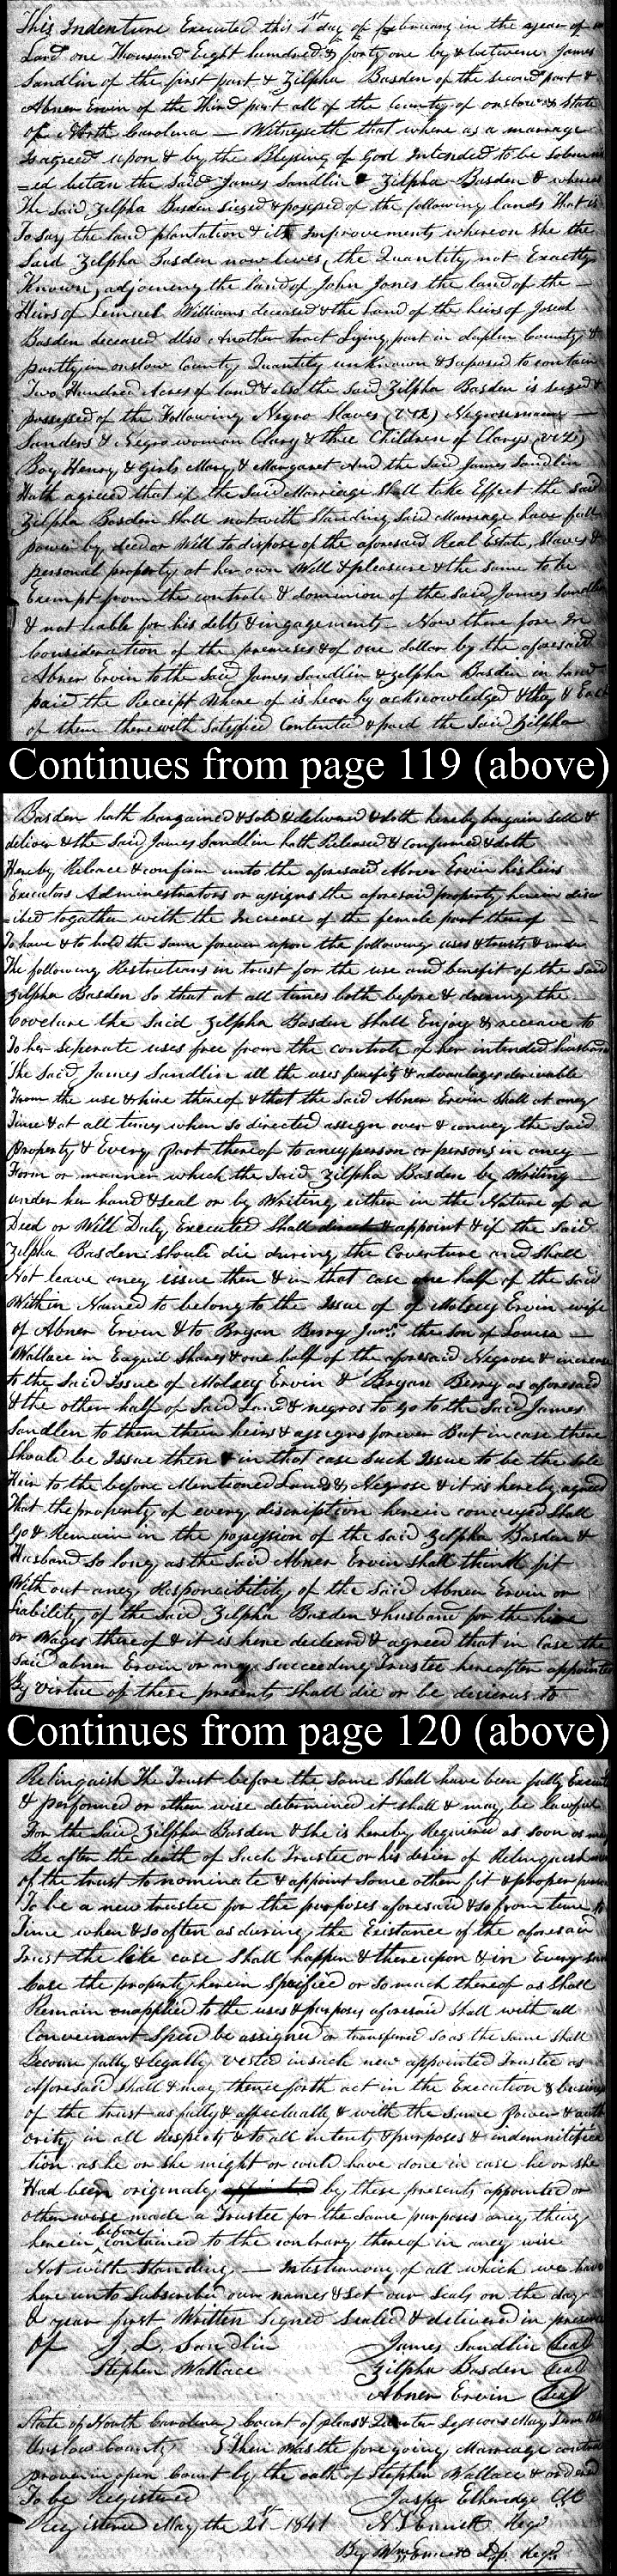 This Indenture Executed this 1st day of February in the year of
Lord one Thousand Eight hundred & forty one by & between James
Sandlin of the first part & Zilpha Basden of the second part &
Abner Ervin of the Third part all of the County of onslow & State
of North Carolina — Witnesseth that where as a marriage
is agreed upon & by the Blessing of God Intended to be solemn
=ed betwen the said James Sandlin & Zilpha Basden & whereas
The said Zilpha Basden siezed & possessed of the following lands That is
To say the land plantation & its Improvements whereon she the
said Zilpha Basden now lives, the Quantity not Exactly
Known, adjoining the land of John Jones the land of the —
Heirs of Lemuel Williams deceased & the Land of the heirs of Josiah
Basden deceased also Another tract Lying part in duplin County &
partly in onslow County Quantity unknown & suposed to contain
Two Hundred Acres of land & also the said Zilpha Basden is seized &
possessed of the Following Negro Slaves (viz) Negroe man —
Sanders & Negro woman Clary & three Children of Clarys (viz)
Boy Henry & Girls Mary, & Margaret And the said James Sandlin
Hath agreed that if the said Marriage Shall take Effect the said
Zilpha Basden shall notwith Standing said Marriage have full
power by, deed or Will to dispose of the aforesaid Real Estate, Slaves &
personal property at her own Will & pleasure & the same to be
Exempt from the controle & dominion of the said James Sandlin
& not liable for his debts & ingagements — Now there fore In
Consideration of the premises & of one dollar by the aforesaid
Abner Ervin to the said James Sandlin & Zilpha Basden in hand
paid the Receipt Where of is hear by acknowledged & they & Each
of them therewith Satisfied Contented & paid the said Zilpha
Continues from page 119 (above)
Basden hath bargained & sold & delivered & doth hereby bargain sell &
deliver & the said James Sandlin hath Released & confirmed & doth
Hereby Release & confirm unto the aforesaid Abner Ervin his heirs
Executors Administrators or assigns the aforesaid property herein discr
=ibed together with the Increase of the female part thereof - -
To have & to hold the same forever upon the following uses & trusts & under
The following Restrictions in trust for the use and benefit of the said
Zilpha Basden so that at all times both before & during the —
Coveture the said Zilpha Basden shall Enjoy & receave to
To her seperate uses free from the controle of her intended husband
The said James Sandlin all the uses profits & advantages derivable
From the use & hire thereof & that the said Abner Ervin shall at any
Time & at all times when so directed assign over & convey the said
Property & Every part thereof to aney person or persons in aney —
Form or manner which the said Zilpha Basden by Writing —
under her hand & seal or by Writing either in the Nature of a
Deed or Will Duly Executed shall appoint & if the said
Zilpha Basden should die during the Coverture and shall
Not leave aney issue then & in that case one half of the said
With in Named to belong to the Issue of of Molsey Ervin wife
of Abner Ervin & to Bryan Berry Junr. the son of Louisa —
Wallace in Eaquil Shares & one half of the aforesaid Negrose & increase
to the said Issue of Molsey Ervin & Bryan Berry as aforesaid
& the other half of said Land & negros to go to the said James
Sandlen to them their heirs & assigns forever But in case there
should be Issue then & in that case Such Issue to be the sole
Heir to the before Mentioned Land & Negrose & it is hereby agreed
That the property of every discription herein conveyed shall
Go & Remain in the possession of the said Zilpha Basden &
Husband so long as the said Abner Ervin shall think fit
With out aney Responcibility of the said Abner Ervin or
liability of the said Zilpha Basden & husband for the hire
or Wages thereof & it is here decleard & agreed that in Case the
said abner Ervin or any Succeeding Trustee hereafter appointed
By virtue of these presents shall die or be desierus to
Continues from page 120 (above)
Relinquish The Trust before the same shall have been fully Execut
& performed or other wise determined it shall & may be lawful
For the said Zilpha Basden & she is hereby Requiered as soon as may
Be after the death of Such Trustee or his desier of Relinquish
of the trust to nominate & appoint some other fit & proper person
To be a new trustee for the purposes aforesaid & so from time to
Time when & so often as during the Existance of the aforesaid
Trust the like case shall happen & thereupon & in Every such
Case the property herein Specified or so much thereof as Shall
Remain unapplied to the uses & purposes aforesaid shall with all
Conveinant Speed be assigned or transfered so as the same shall
Become fully & legally vested in such new appointed Trustee as
aforesaid shall & may thence forth act in the Execution & busines
of the trust as fully & affectually & with the same Power & auth
ority in all Respects & to all intents & purposes & indemnitifica
tion as he or she might or could have done in case he or she
Had been originaly by these presents appointed or
otherwise made a Trustee for the same purposes aney thing
herein before contained to the contrary thereof in aney wise
Not with standing — Intestimony of all which we have
here unto Subscribed our names & set our seals on the day
& year first Written Signed Sealed & delivered in presence
Of J. L. Sandlin James Sandlin (seal)
Stephen Wallace Zilpha Basden (seal)
Abner Ervin (seal)
State of North Carolina) Court of pleas & Quarter Sessions May Term
Onslow County Then was the foregoing Marriage contract
proven in open Court by the oath of Stephen Wallace & ordered
To be Registered Jasper Etheridge Clk
Registered May the 21st 1841 Regr.
By Wm Dp. Regr.